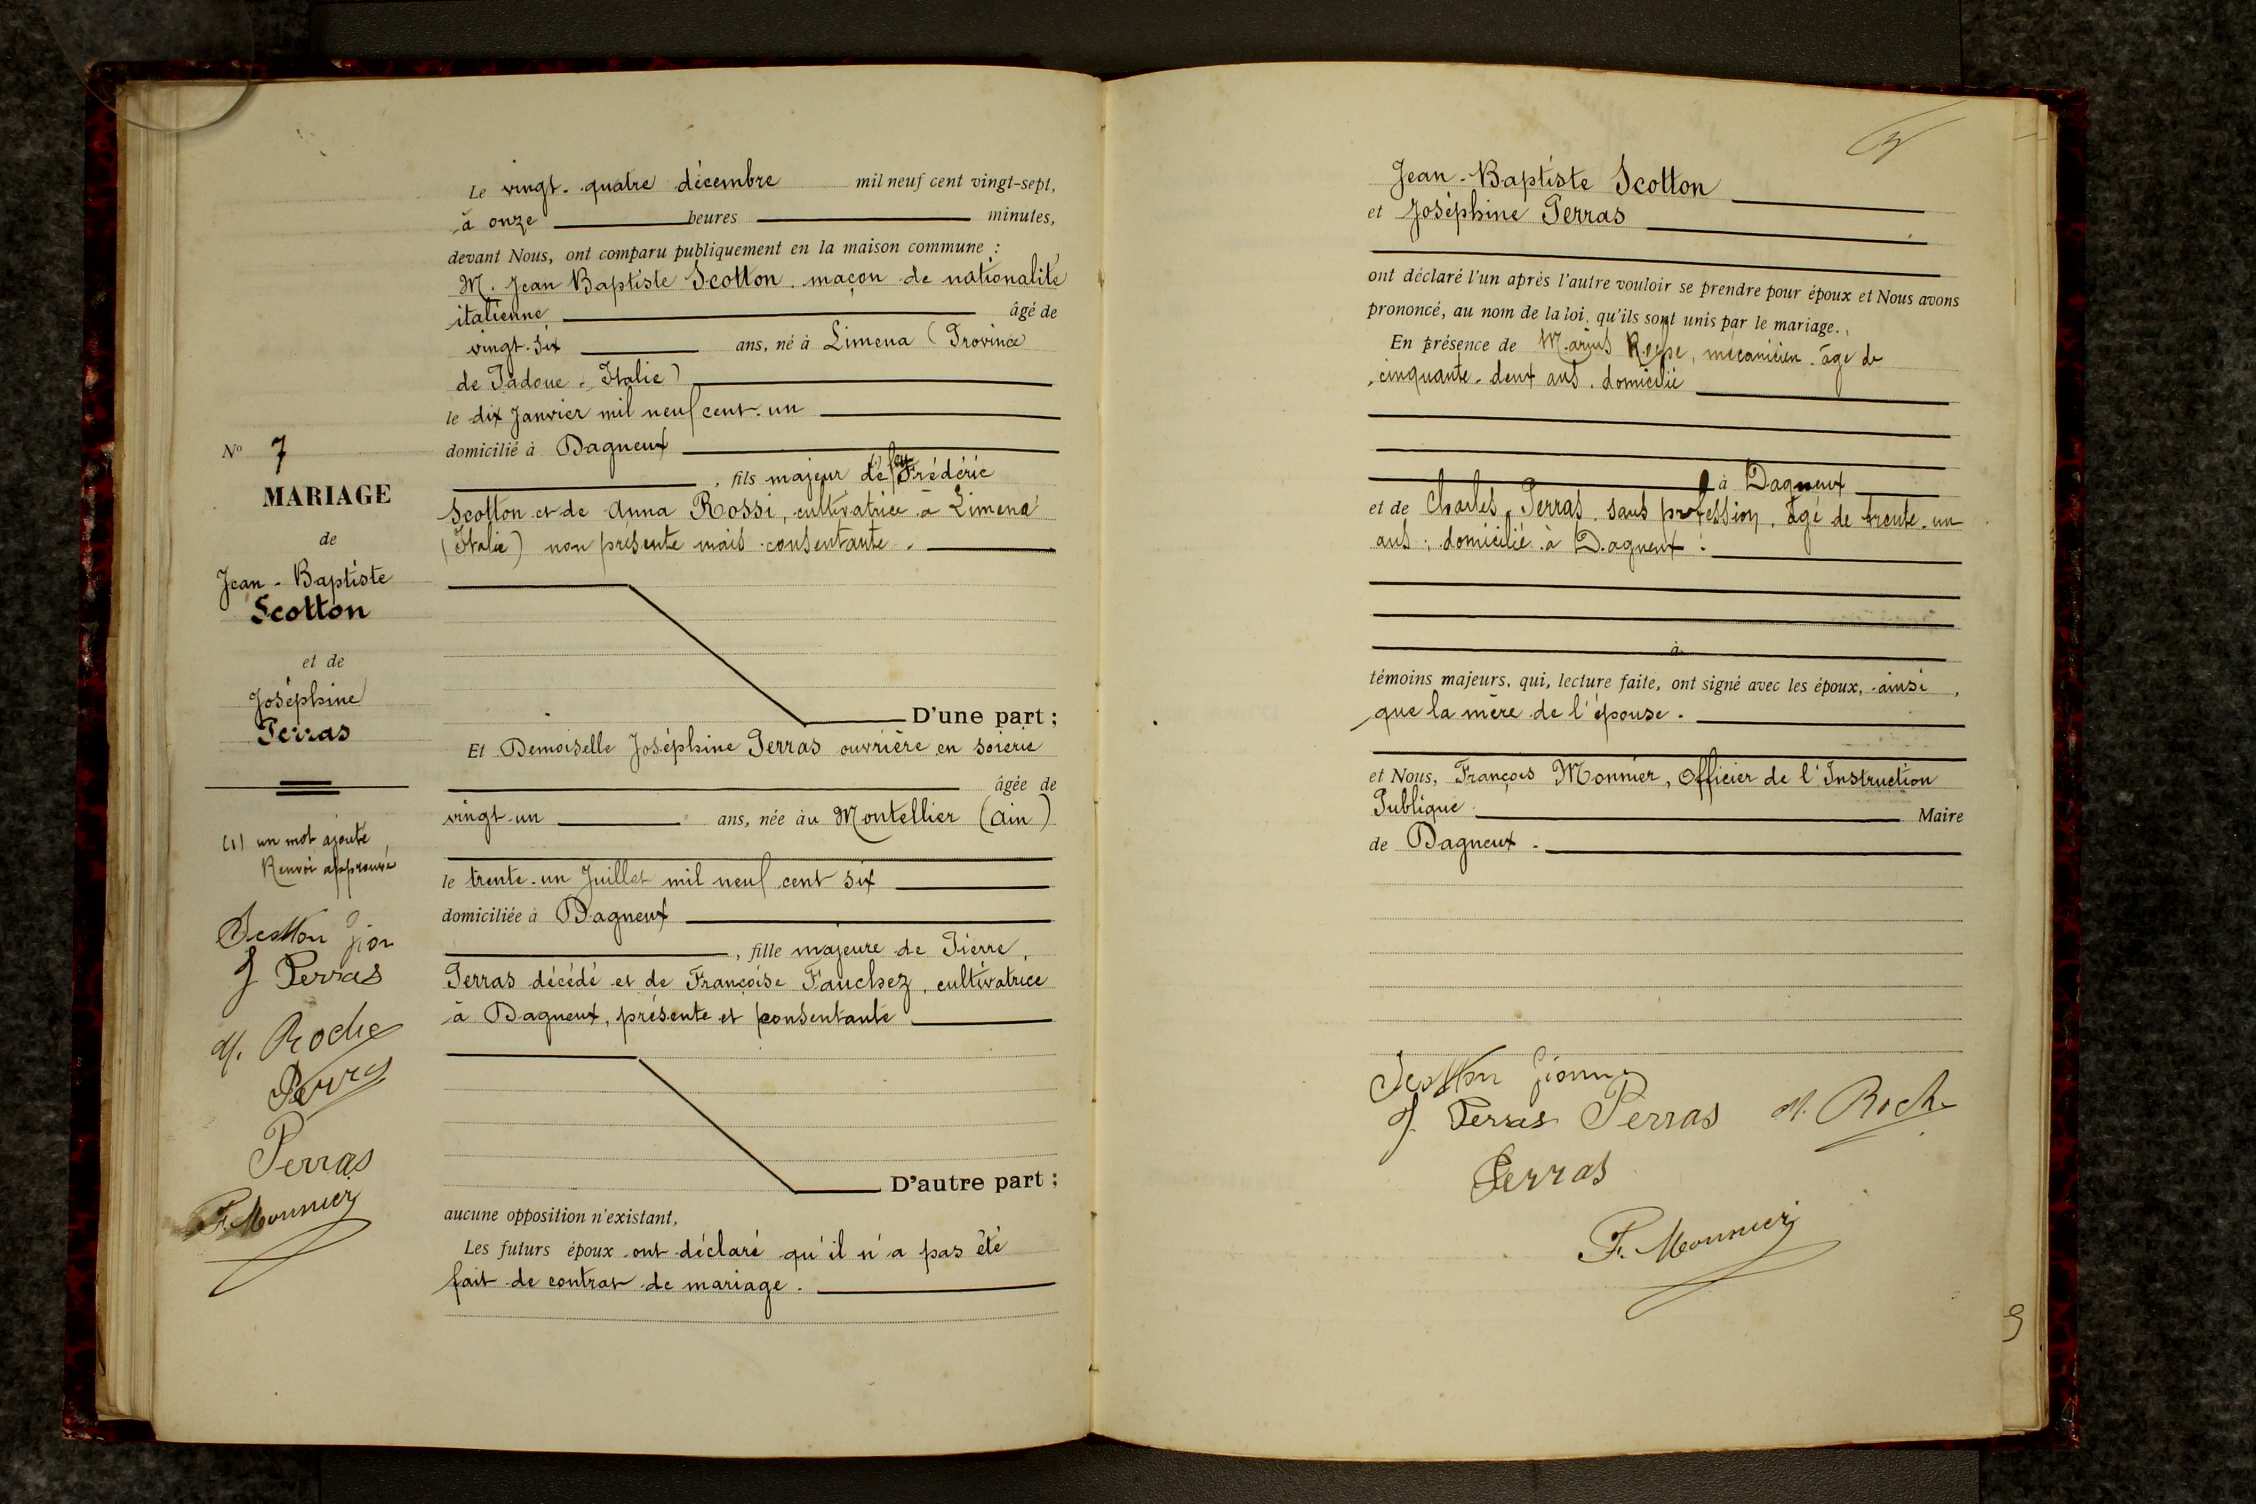 N° 7
MARIAGE
de
Jean-Baptiste
Scotton
et de
Joséphine
Perras
(1) un mot ajouté
Renvoi approuvé
Scotton
J Perras
M. Roche
Perras
Perras
F. Monnier
Le vingt-quatre décembre mil neuf cent vingt-sept,
à onze heures minutes,
devant Nous, ont comparu publiquement en la maison commune :
M. Jean Baptiste Scotton maçon de nationalité
italienne âgé de
vingt-six ans, né à Limena (Province
de Padoue. Italie)
le dix Janvier mil neuf cent-un
domicilié à Dagneux
, fils majeur de (1) feu Frédéric
Scotton et de Anna Rossi, cultivatrice à Limena
(Italie) non présente mais consentante.
D'une part ;
Et Demoiselle Joséphine Perras ouvrière en soierie
âgée de
vingt-un ans, née àu Montellier (Ain)
le trente-un Juillet mil neuf cent six
domiciliée à Dagneux
, fille majeure de Pierre,
Perras décédé et de Françoise Fauchez, cultivatrice
à Dagneux, présente et consentante
D'autre part ;
aucune opposition n'existant,
Les futurs époux ont déclaré qu'il n'a pas été
fait de contrat de mariage.
Jean-Baptiste Scotton
et Joséphine Perras
ont déclaré l'un après l'autre vouloir se prendre pour époux et Nous avons
prononcé, au nom de la loi, qu'ils sont unis par le mariage.
En présence de Marius Roche, mécanicien âgé de
cinquante-deux ans, domicilié
à Dagneux
et de Charles Perras sans profession, âgé de trente-un
ans, domicilié à Dagneux.
à
témoins majeurs, qui, lecture faite, ont signé avec les époux, ainsi,
que la mère de l'épouse.
et Nous, François Monnier, Officier de l'Instruction
Publique Maire
de Dagneux.
Scotton
J. Perras Perras M. Roche
Perras
F. Monnier